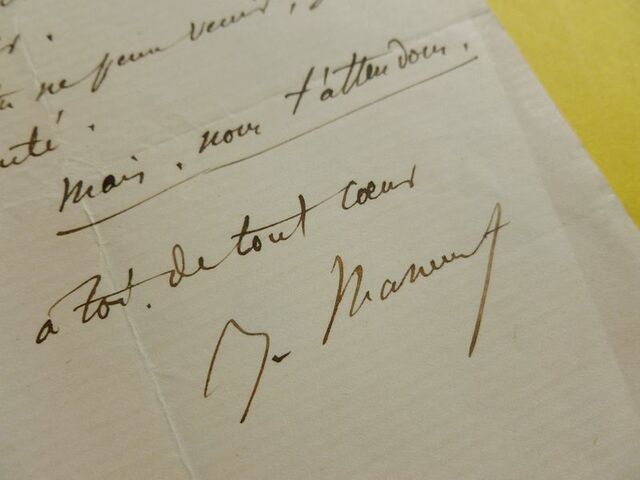 tu ne peux venir,
Mais. nous t'attendons.
à toi. de tout cœur
J. Massenet